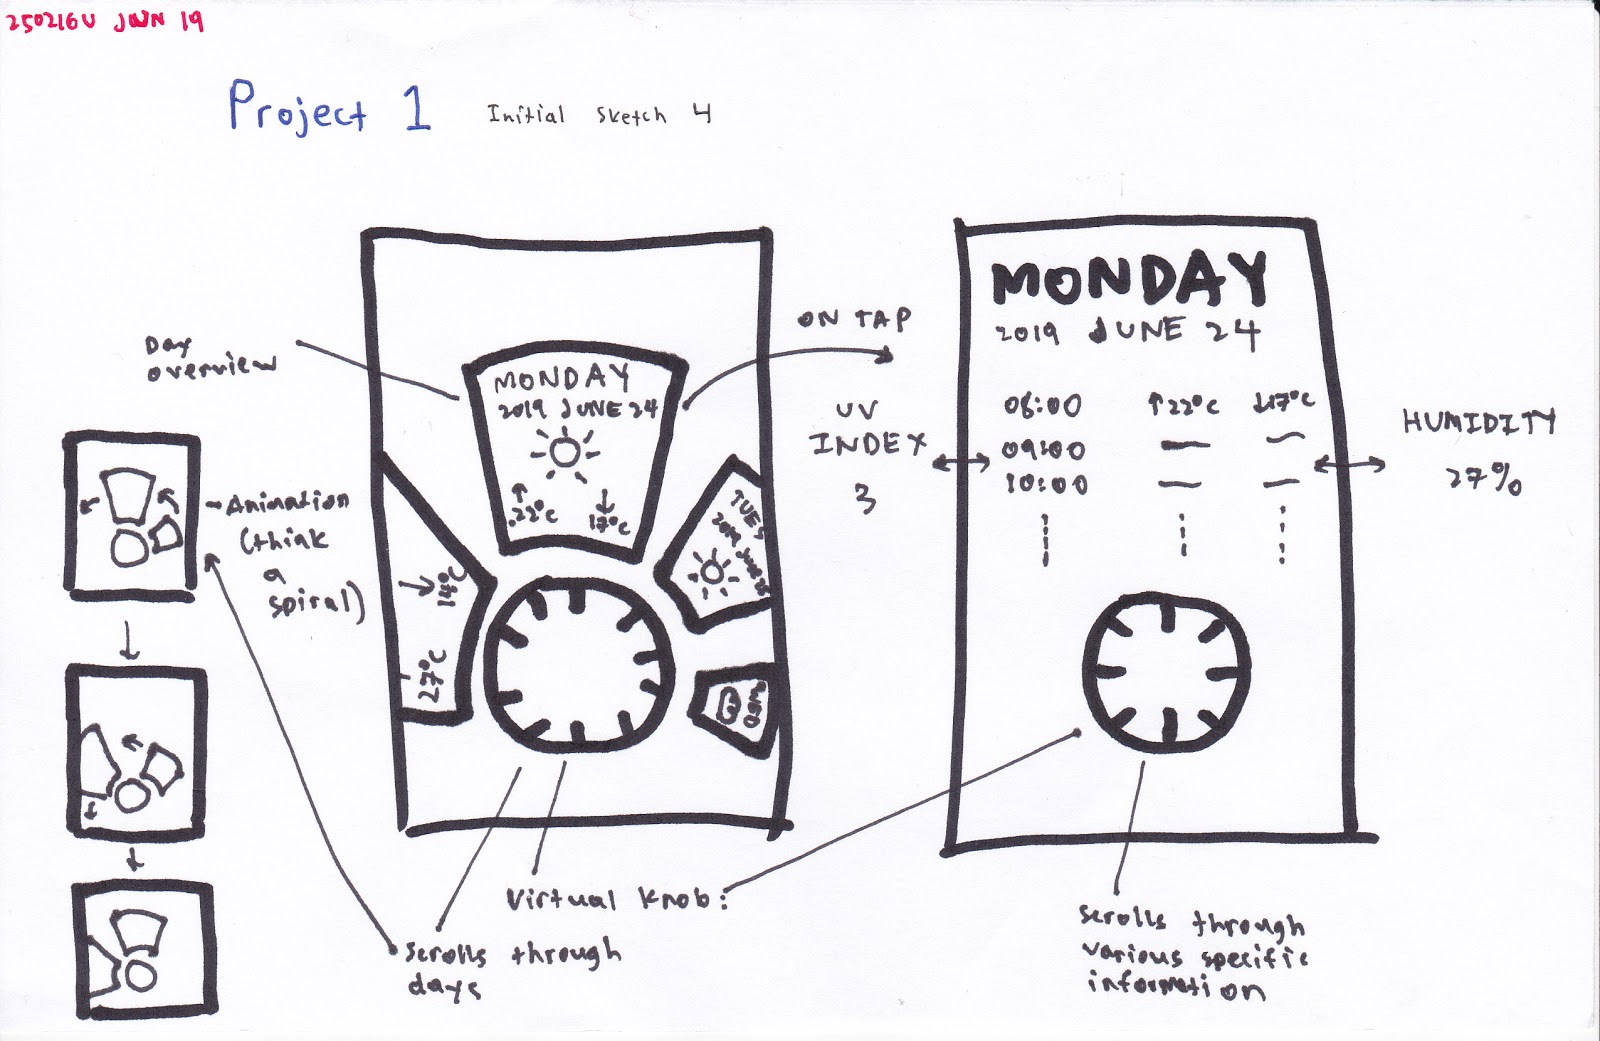 250216U JUN 19
Project 1 Initial Sketch 4
Day
overview
MONDAY
2019 JUNE 24
↑ ↓
22°C 17°C
TUES
2019 JUNE 25
WED
↓ 14°C
27°C
ON TAP
Animation
(think
a
spiral)
Virtual Knob:
Scrolls through
days
MONDAY
2019 JUNE 24
08:00 ↑22°C ↓17°C
09:00
10:00
UV
INDEX
3
HUMIDITY
27%
Scrolls through
various specific
information